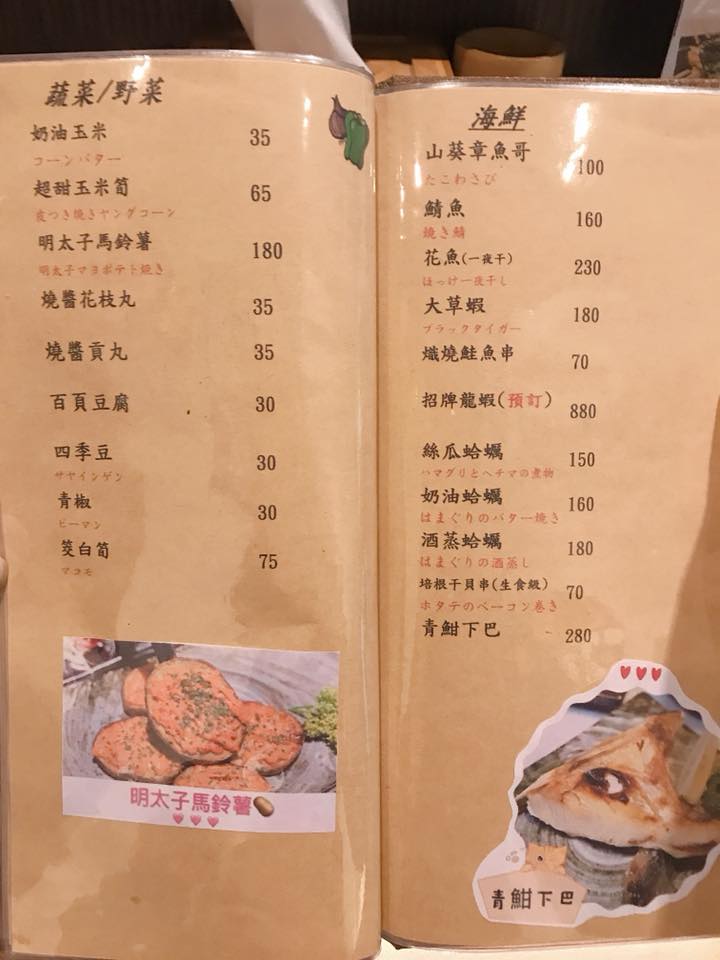 蔬菜/野菜
奶油玉米 35
コーンバター
超甜玉米筍 65
皮つき焼きヤングコーン
明太子馬鈴薯 180
明太子マヨポテト焼き
燒醬花枝丸 35
燒醬貢丸 35
百頁豆腐 30
四季豆 30
サヤインゲン
青椒 30
ピーマン
筊白筍 75
マコモ
明太子馬鈴薯
海鮮
山葵章魚哥 100
たこわさび
鯖魚 160
焼き鯖
花魚(一夜干) 230
ほっけ一夜干し
大草蝦 180
ブラックタイガー
熾燒鮭魚串 70
招牌龍蝦(預訂) 880
絲瓜蛤蠣 150
ハマグリとヘチマの煮物
奶油蛤蠣 160
はまぐりのバター焼き
酒蒸蛤蠣 180
はまぐりの酒蒸し
培根干貝串(生食級) 70
ホタテのベーコン巻き
青魽下巴 280
青魽下巴